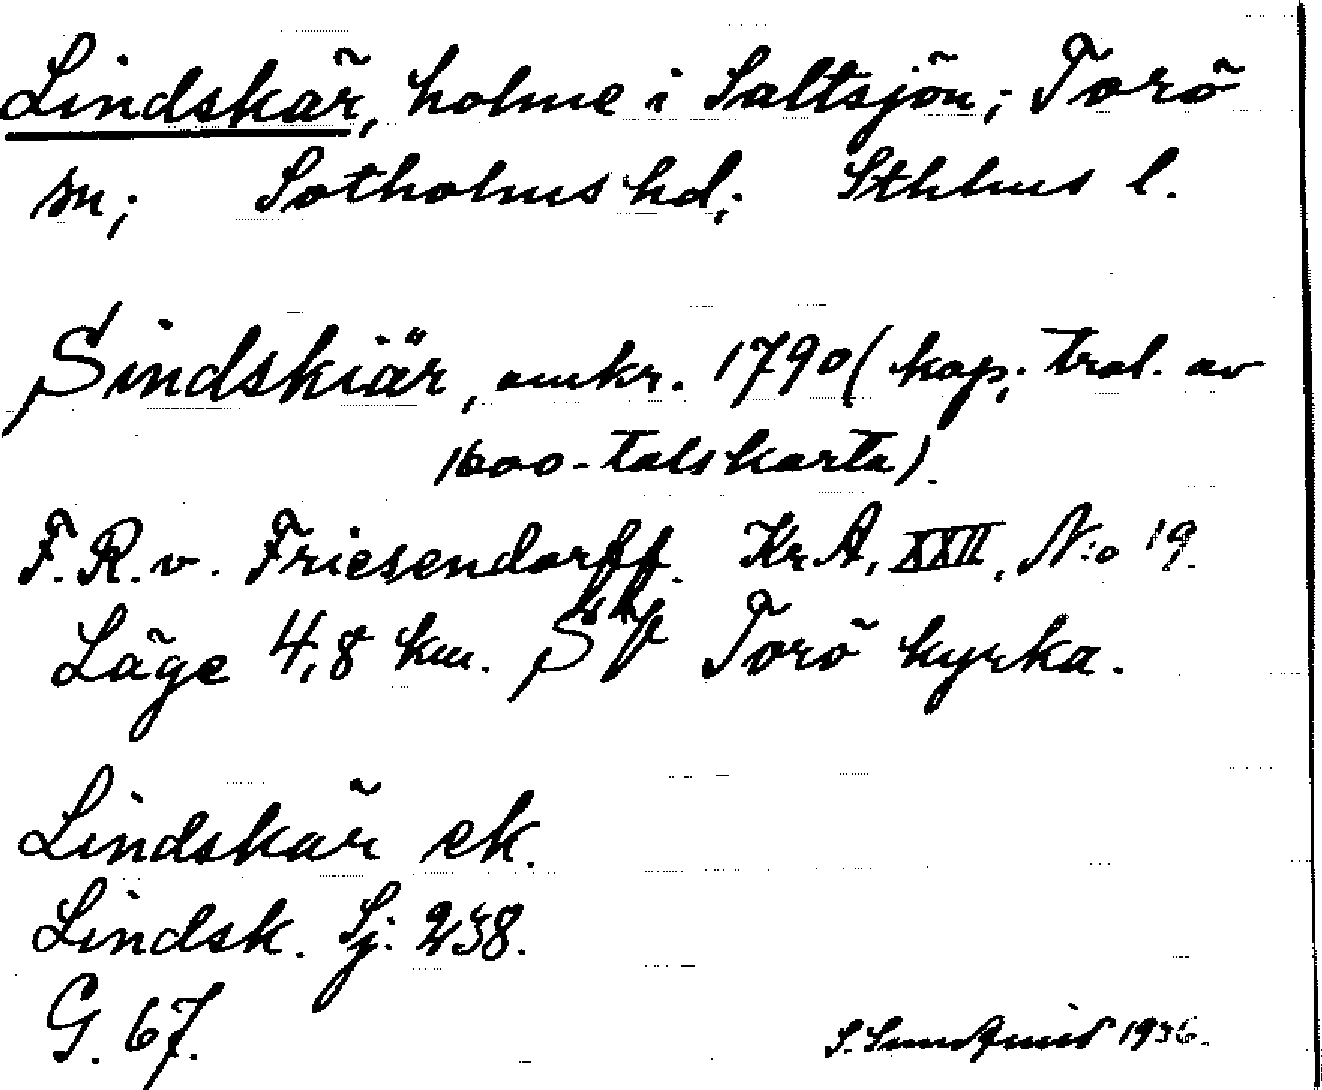 Lindskär, holme i Saltsjön; Torö
sn; Sotholms hd; Sthlms l.
Sindskiär, omkr. 1790 (kop. trol. av
1600-talskarta).
F. R. v. Friesendorff. Kr A, XXII, N:o 19.
Läge 4,8 km. SV Torö kyrka.
Lindskär ek.
Lindsk. Sj. 238.
G. 67.
S. Sundqvist 1936.